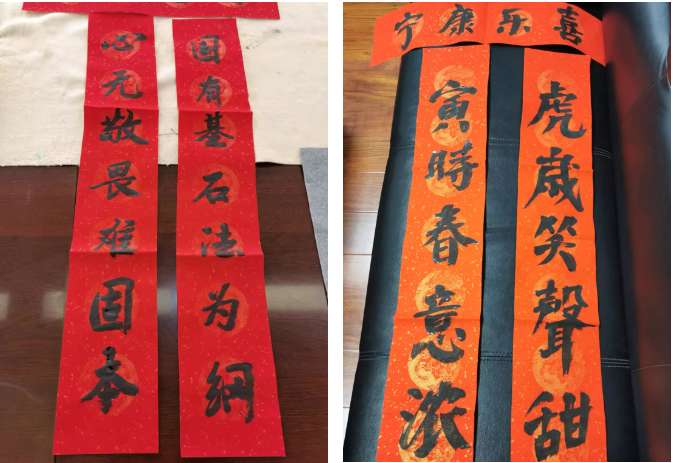 固有基石法为綱
心无敬畏难固本
喜乐康宁
虎歲笑聲甜
寅時春意浓